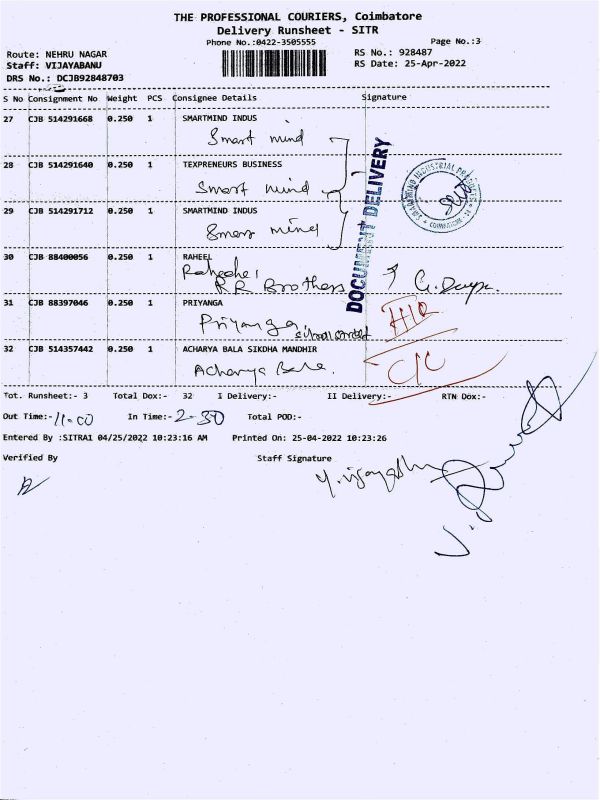 THE PROFESSIONAL COURIERS, Coimbatore
Delivery Runsheet - SITR
Phone No.:0422-3505555 Page No.:3
Route: NEHRU NAGAR RS No.: 928487
Staff: VIJAYABANU RS Date: 25-Apr-2022
DRS No.: DCJB92848703
S No Consignment No Weight PCS Consignee Details Signature
27 CJB 514291668 0.250 1 SMARTMIND INDUS
Smart mind
28 CJB 514291640 0.250 1 TEXPRENEURS BUSINESS
Smart mind
29 CJB 514291712 0.250 1 SMARTMIND INDUS
Smart mind
DOCUMENT DELIVERY
30 CJB 88400056 0.250 1 RAHEEL
RR Brothers
31 CJB 88397046 0.250 1 PRIYANGA
Priyanga
32 CJB 514357442 0.250 1 ACHARYA BALA SIKDHA MANDHIR
Acharya Bala
Tot. Runsheet:- 3 Total Dox:- 32 I Delivery:- II Delivery:- RTN Dox:-
Out Time:- 11-00 In Time:- 2-30 Total POD:-
Entered By :SITRA1 04/25/2022 10:23:16 AM Printed On: 25-04-2022 10:23:26
Verified By Staff Signature